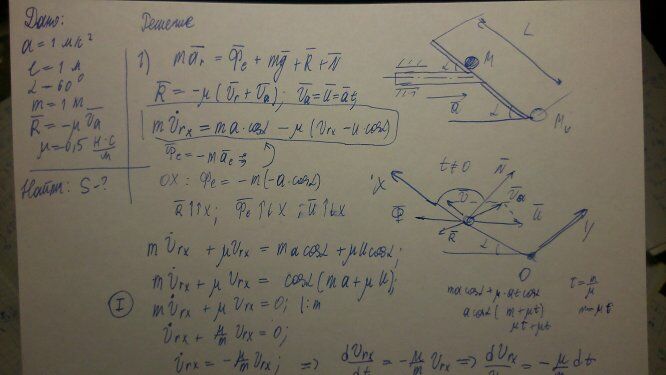 Дано:
a = 1 м/с²
ℓ = 1 м
α = 60°
m = 1 м
R̄ = -μ V̄a
μ = 0,5 Н·с/м
Найти: S - ?
Решение
1) m ā_r = Φ̄e + mḡ + R̄ + N̄
R̄ = -μ (V̄r + V̄a); Va = Ū = āt;
m V̇rx = ma·cosα - μ (Vrx - u cosα)
Φ̄e = -m āe
OX: Φe = -m(-a·cosα)
R̄ ↑↑ x; Φ̄e ↑↓ x; Ū ↑↓ x
m V̇rx + μ Vrx = ma cosα + μ U cosα;
m V̇rx + μ Vrx = cosα (ma + μ U);
I
m V̇rx + μ Vrx = 0; |:m
V̇rx + μ/m Vrx = 0;
V̇rx = - μ/m Vrx; => dVrx/dt = - μ/m Vrx => dVrx/Vrx = - μ/m dt
L
M
α
ā
α
t≠0
N̄
X
Φ̄
R̄
Ū
α
O
Y
ma cosα + μ·at cosα
a cosα (m + μt)